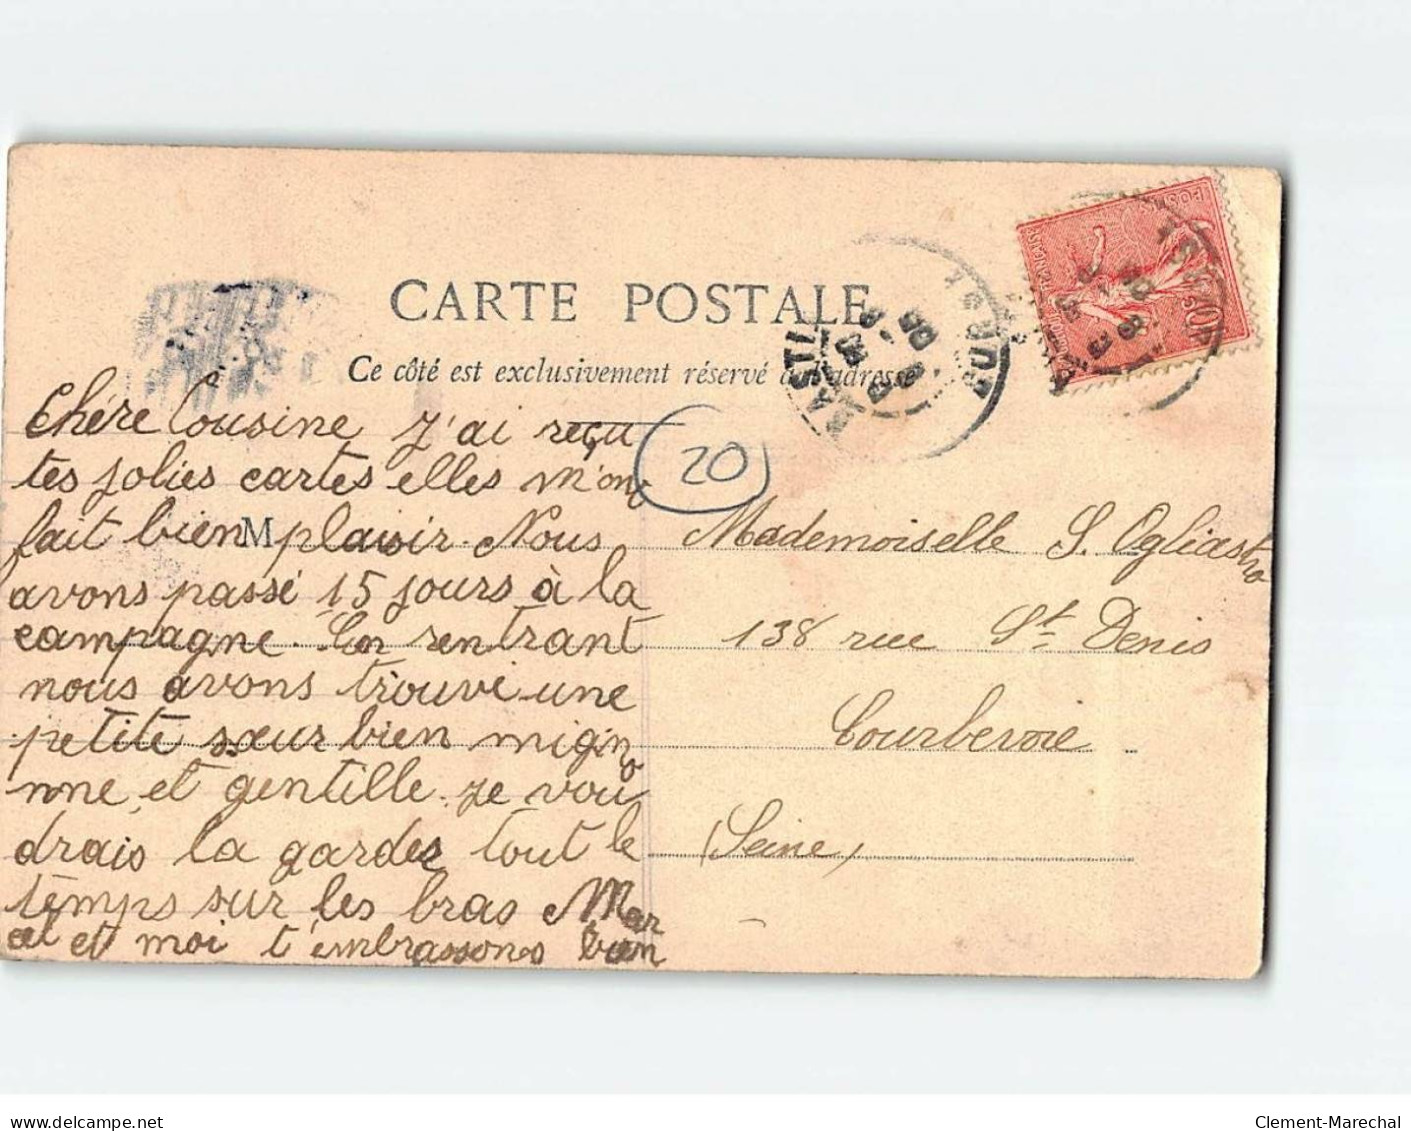 CARTE POSTALE
Ce côté est exclusivement réservé à l'adresse
Chére Cousine j'ai reçu
tes jolies cartes elles m'ont
fait bien plaisir. Nous
M
avons passé 15 jours à la
campagne. En rentrant
nous avons trouvé une
petite sœur bien migno
nne et gentille je vou
drais la garder tout le
temps sur les bras Mar
cel et moi t'embrassons bien
20
Mademoiselle S. Ogliastro
138 rue St Denis
Courbevoie
(Seine)
BASTIA
05
POSTES
10
delcampe.net
Clement-Marechal